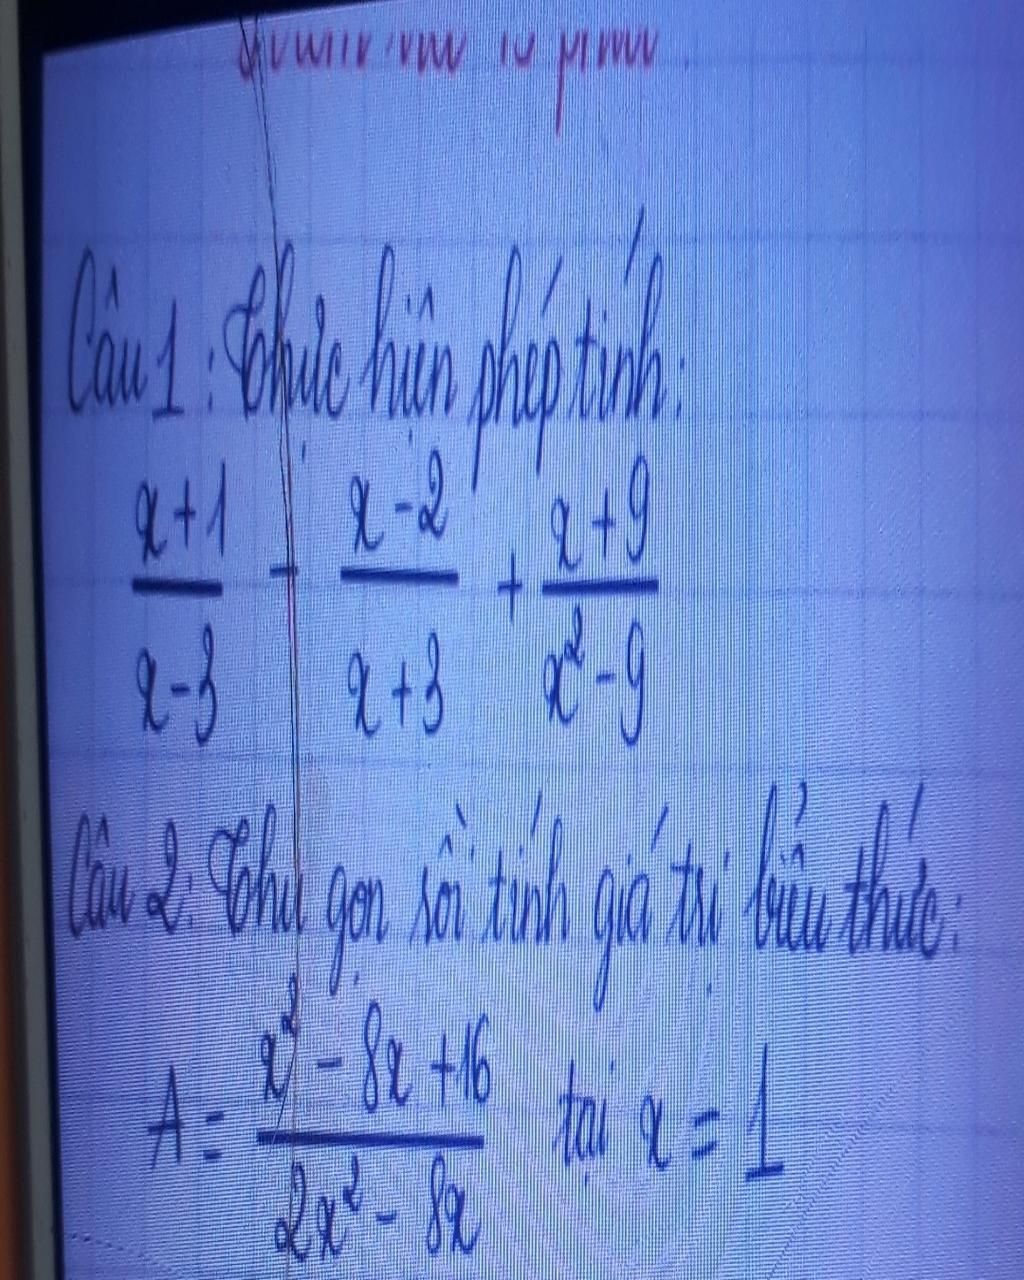 Câu 1: Thực hiện phép tính:
x+1 / x-3 - x-2 / x+3 + x+9 / x²-9
Câu 2: Thu gọn rồi tính giá trị biểu thức:
A = x² - 8x + 16 / 2x² - 8x tại x = 1